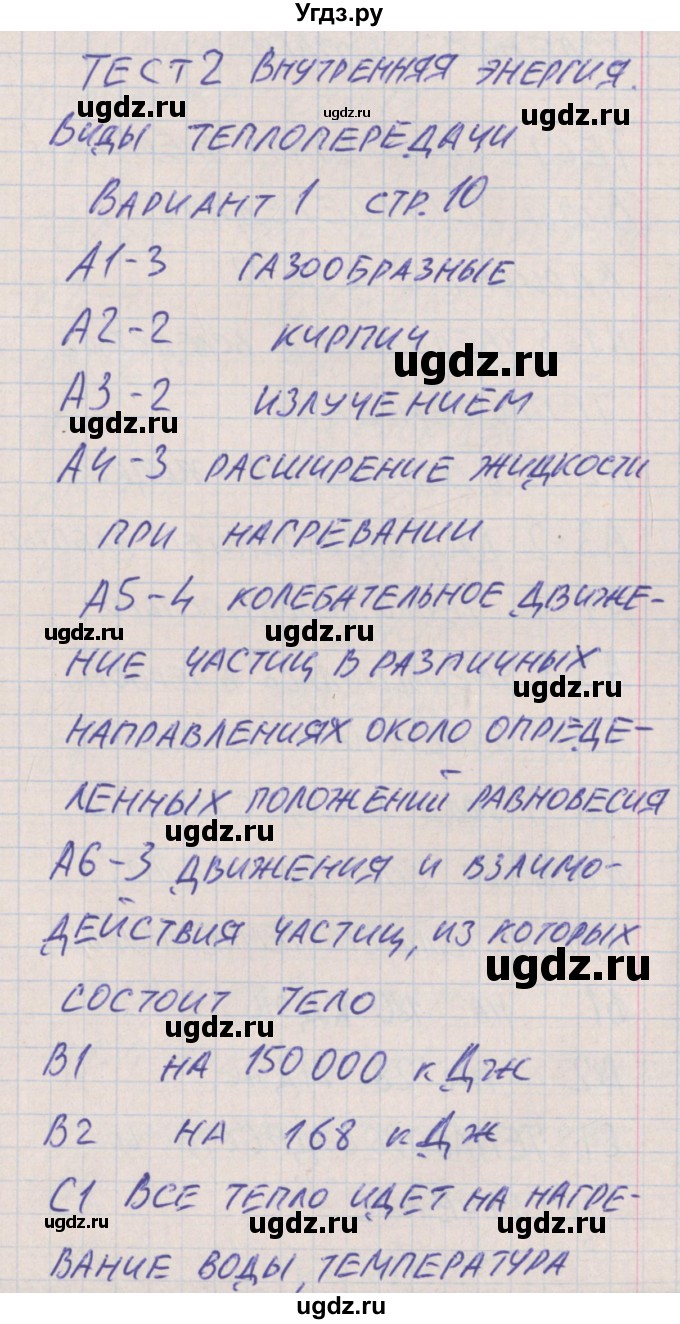 Угдз.ру
ТЕСТ 2 ВНУТРЕННЯЯ ЭНЕРГИЯ.
ugdz.ru ugdz.ru ugdz.ru
ВИДЫ ТЕПЛОПЕРЕДАЧИ
ВАРИАНТ 1 СТР. 10
А1-3 ГАЗООБРАЗНЫЕ
А2-2 КИРПИЧ
ugdz.ru
А3-2 ИЗЛУЧЕНИЕМ
ugdz.ru
А4-3 РАСШИРЕНИЕ ЖИДКОСТИ
ПРИ НАГРЕВАНИИ
А5-4 КОЛЕБАТЕЛЬНОЕ ДВИЖЕ-
ugdz.ru ugdz.ru
НИЕ ЧАСТИЦ В РАЗЛИЧНЫХ
ugdz.ru
НАПРАВЛЕНИЯХ ОКОЛО ОПРЕДЕ-
ЛЕННЫХ ПОЛОЖЕНИЙ РАВНОВЕСИЯ
ugdz.ru
А6-3 ДВИЖЕНИЯ И ВЗАИМО-
ДЕЙСТВИЯ ЧАСТИЦ, ИЗ КОТОРЫХ
ugdz.ru
СОСТОИТ ТЕЛО
ugdz.ru
В1 НА 150000 кДж
В2 НА 168 кДж
С1 ВСЕ ТЕПЛО ИДЕТ НА НАГРЕ-
ugdz.ru ugdz.ru ugdz.ru
ВАНИЕ ВОДЫ, ТЕМПЕРАТУРА
ugdz.ru